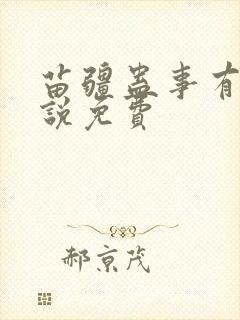 苗疆蛊事有
说免费
郝京茂